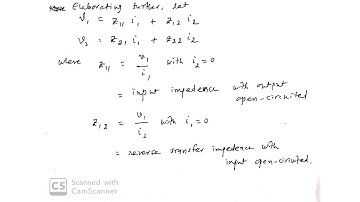 Elaborating further, let
v₁ = z₁₁ i₁ + z₁₂ i₂
v₂ = z₂₁ i₁ + z₂₂ i₂
where z₁₁ = v₁/i₁ with i₂=0
= input impedence with output
open-circuited
z₁₂ = v₁/i₂ with i₁=0
= reverse transfer impedence with
input open-circuited.
CS Scanned with
CamScanner